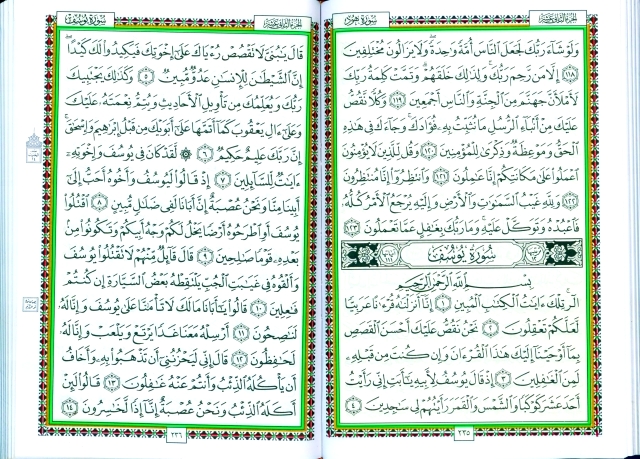 الجزء الثاني عشر
سورة هود
وَلَوْ شَآءَ رَبُّكَ لَجَعَلَ ٱلنَّاسَ أُمَّةً وَٰحِدَةً وَلَا يَزَالُونَ مُخْتَلِفِينَ
١١٨ إِلَّا مَن رَّحِمَ رَبُّكَ وَلِذَٰلِكَ خَلَقَهُمْ وَتَمَّتْ كَلِمَةُ رَبِّكَ
لَأَمْلَأَنَّ جَهَنَّمَ مِنَ ٱلْجِنَّةِ وَٱلنَّاسِ أَجْمَعِينَ ١١٩ وَكُلًّا نَّقُصُّ
عَلَيْكَ مِنْ أَنۢبَآءِ ٱلرُّسُلِ مَا نُثَبِّتُ بِهِۦ فُؤَادَكَ وَجَآءَكَ فِى هَٰذِهِ
ٱلْحَقُّ وَمَوْعِظَةٌ وَذِكْرَىٰ لِلْمُؤْمِنِينَ ١٢٠ وَقُل لِّلَّذِينَ لَا يُؤْمِنُونَ
ٱعْمَلُوا۟ عَلَىٰ مَكَانَتِكُمْ إِنَّا عَٰمِلُونَ ١٢١ وَٱنتَظِرُوٓا۟ إِنَّا مُنتَظِرُونَ
١٢٢ وَلِلَّهِ غَيْبُ ٱلسَّمَٰوَٰتِ وَٱلْأَرْضِ وَإِلَيْهِ يُرْجَعُ ٱلْأَمْرُ كُلُّهُۥ
فَٱعْبُدْهُ وَتَوَكَّلْ عَلَيْهِ وَمَا رَبُّكَ بِغَٰفِلٍ عَمَّا تَعْمَلُونَ ١٢٣
سُورَةُ يُوسُفَ
بِسْمِ ٱللَّهِ ٱلرَّحْمَٰنِ ٱلرَّحِيمِ
الٓر تِلْكَ ءَايَٰتُ ٱلْكِتَٰبِ ٱلْمُبِينِ ١ إِنَّآ أَنزَلْنَٰهُ قُرْءَٰنًا عَرَبِيًّا
لَّعَلَّكُمْ تَعْقِلُونَ ٢ نَحْنُ نَقُصُّ عَلَيْكَ أَحْسَنَ ٱلْقَصَصِ
بِمَآ أَوْحَيْنَآ إِلَيْكَ هَٰذَا ٱلْقُرْءَانَ وَإِن كُنتَ مِن قَبْلِهِۦ
لَمِنَ ٱلْغَٰفِلِينَ ٣ إِذْ قَالَ يُوسُفُ لِأَبِيهِ يَٰٓأَبَتِ إِنِّى رَأَيْتُ
أَحَدَ عَشَرَ كَوْكَبًا وَٱلشَّمْسَ وَٱلْقَمَرَ رَأَيْتُهُمْ لِى سَٰجِدِينَ ٤
٢٣٥
الجزء الثاني عشر
سورة يوسف
قَالَ يَٰبُنَىَّ لَا تَقْصُصْ رُءْيَاكَ عَلَىٰٓ إِخْوَتِكَ فَيَكِيدُوا۟ لَكَ كَيْدًا
إِنَّ ٱلشَّيْطَٰنَ لِلْإِنسَٰنِ عَدُوٌّ مُّبِينٌ ٥ وَكَذَٰلِكَ يَجْتَبِيكَ
رَبُّكَ وَيُعَلِّمُكَ مِن تَأْوِيلِ ٱلْأَحَادِيثِ وَيُتِمُّ نِعْمَتَهُۥ عَلَيْكَ
وَعَلَىٰٓ ءَالِ يَعْقُوبَ كَمَآ أَتَمَّهَا عَلَىٰٓ أَبَوَيْكَ مِن قَبْلُ إِبْرَٰهِيمَ وَإِسْحَٰقَ
إِنَّ رَبَّكَ عَلِيمٌ حَكِيمٌ ٦ ۞ لَّقَدْ كَانَ فِى يُوسُفَ وَإِخْوَتِهِۦٓ
ءَايَٰتٌ لِّلسَّآئِلِينَ ٧ إِذْ قَالُوا۟ لَيُوسُفُ وَأَخُوهُ أَحَبُّ إِلَىٰٓ
أَبِينَا مِنَّا وَنَحْنُ عُصْبَةٌ إِنَّ أَبَانَا لَفِى ضَلَٰلٍ مُّبِينٍ ٨ ٱقْتُلُوا۟
يُوسُفَ أَوِ ٱطْرَحُوهُ أَرْضًا يَخْلُ لَكُمْ وَجْهُ أَبِيكُمْ وَتَكُونُوا۟ مِنۢ
بَعْدِهِۦ قَوْمًا صَٰلِحِينَ ٩ قَالَ قَآئِلٌ مِّنْهُمْ لَا تَقْتُلُوا۟ يُوسُفَ
وَأَلْقُوهُ فِى غَيَٰبَتِ ٱلْجُبِّ يَلْتَقِطْهُ بَعْضُ ٱلسَّيَّارَةِ إِن كُنتُمْ
فَٰعِلِينَ ١٠ قَالُوا۟ يَٰٓأَبَانَا مَا لَكَ لَا تَأْمَ۫نَّا عَلَىٰ يُوسُفَ وَإِنَّا لَهُۥ
لَنَٰصِحُونَ ١١ أَرْسِلْهُ مَعَنَا غَدًا يَرْتَعْ وَيَلْعَبْ وَإِنَّا لَهُۥ
لَحَٰفِظُونَ ١٢ قَالَ إِنِّى لَيَحْزُنُنِىٓ أَن تَذْهَبُوا۟ بِهِۦ وَأَخَافُ
أَن يَأْكُلَهُ ٱلذِّئْبُ وَأَنتُمْ عَنْهُ غَٰفِلُونَ ١٣ قَالُوا۟ لَئِنْ
أَكَلَهُ ٱلذِّئْبُ وَنَحْنُ عُصْبَةٌ إِنَّآ إِذًا لَّخَٰسِرُونَ ١٤
٢٣٦